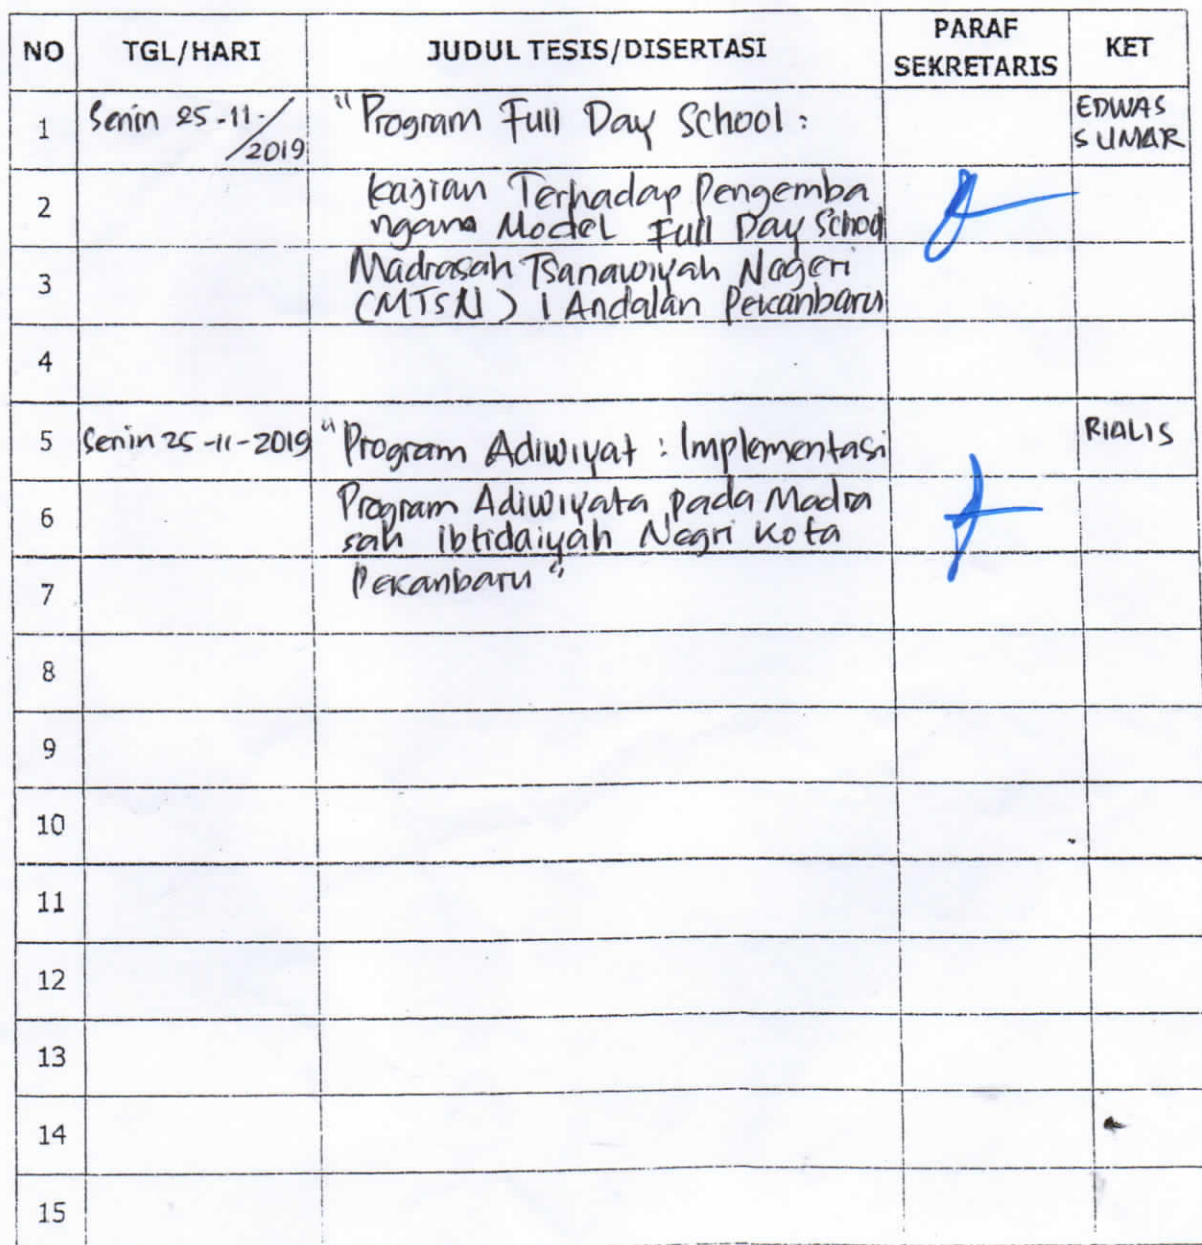 NO TGL/HARI JUDUL TESIS/DISERTASI PARAF SEKRETARIS KET
1 Senin 25-11-/2019 "Program Full Day School: EDWAS SUMAR
2 kajian Terhadap Pengemba
ngana Model Full Day School
3 Madrasah Tsanawiyah Negeri
(MTsN) 1 Andalan Pekanbaru
4
5 Senin 25-11-2019 "Program Adiwiyat : Implementasi RIALIS
6 Program Adiwiyata pada Madra
sah ibtidaiyah Negri Kota
7 Pekanbaru"
8
9
10
11
12
13
14
15